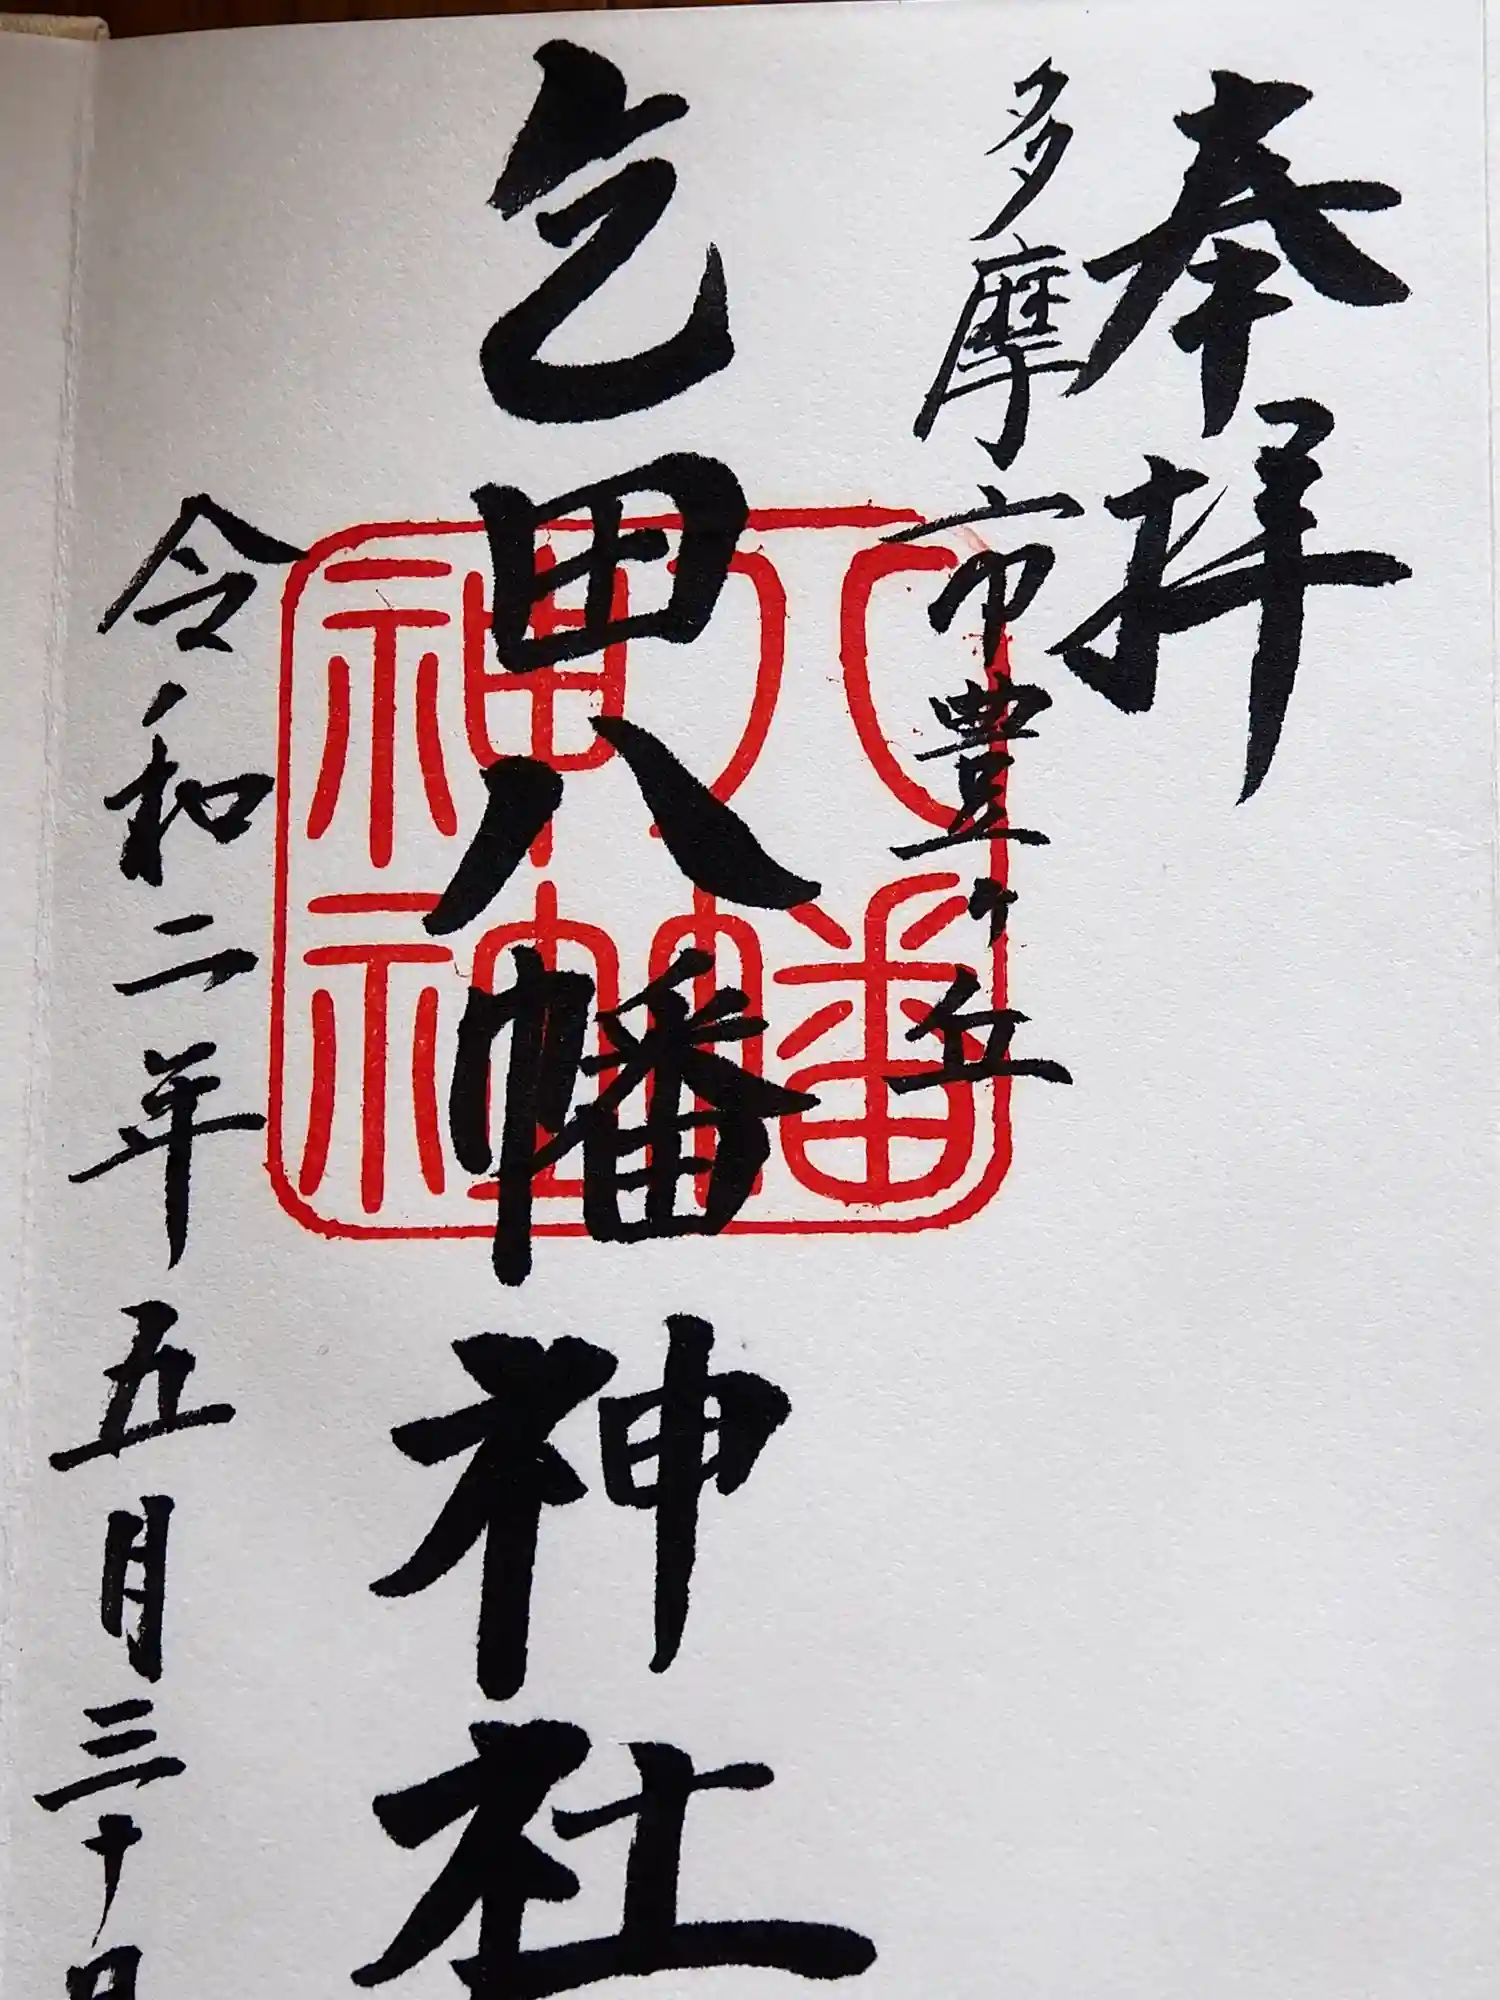 奉拝
多摩市豊ヶ丘
乞田八幡神社
令和二年五月三十日
八幡神社